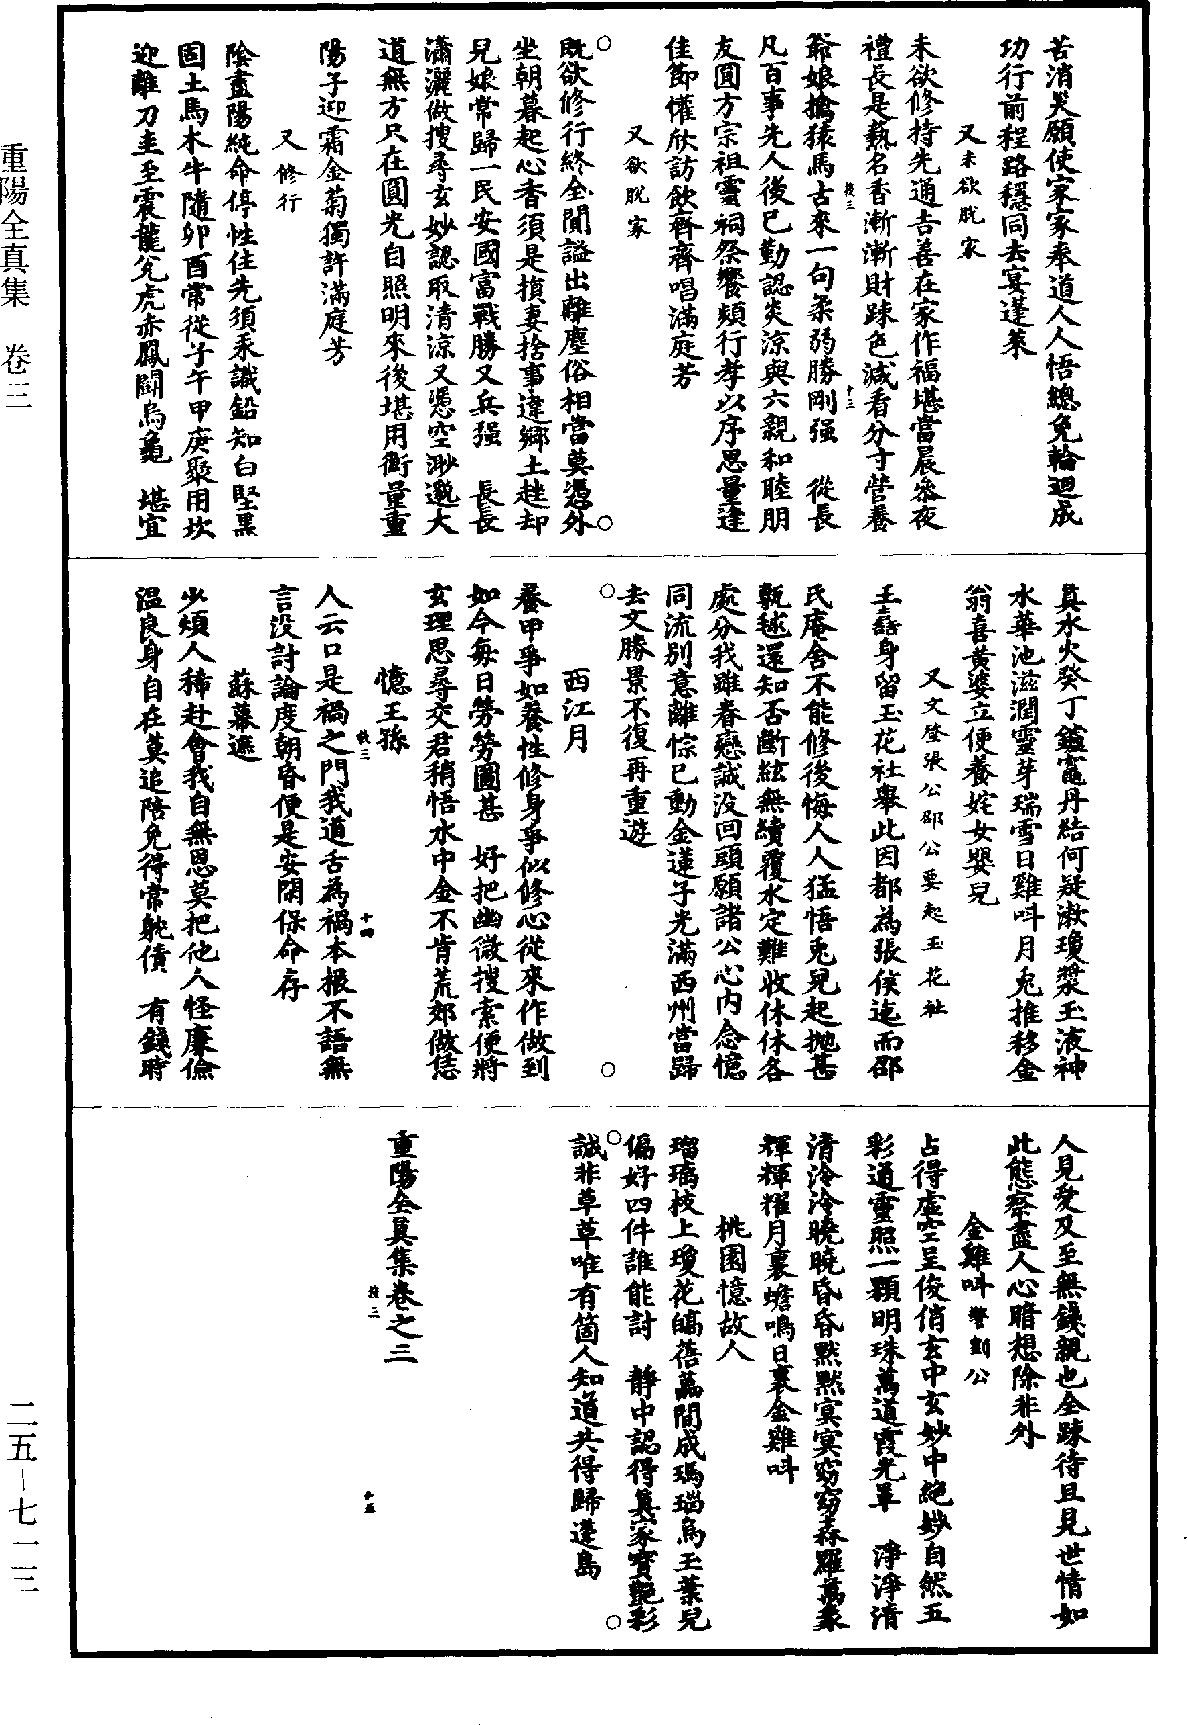 重陽全真集　卷三
二五－七一三
苦消災願使家家奉道人人悟總免輪迴成
功行前程路穩同去宴蓬萊
又未欲脫家
未欲修持先通吉善在家作福堪當晨參夜
禮長是爇名香漸漸財踈色減看分寸營養
爺娘擒猿馬古來一句柔弱勝剛强　從長
凡百事先人後己勤認炎涼與六親和睦朋
友圓方宗祖靈祠祭饗頻行孝以序思量逢
佳節懽欣訪飲齊齊唱滿庭芳
又欲脫家
既欲修行終全閒謐出離塵俗相當莫憑外
坐朝暮起心香須是損妻捨事違鄉土趓却
兒娘常歸一民安國富戰勝又兵强　長長
瀟灑做搜尋玄妙認取清涼又憑空渺邈大
道無方只在圓光自照明來後堪用衡量重
陽子迎霜金菊獨許滿庭芳
又修行
陰盡陽純命停性住先須汞識鉛知白堅黑
固土馬木牛隨卯酉常從子午甲庚聚用坎
迎離刀圭至震龍兌虎赤鳳鬭烏龜　堪宜
真水火癸丁鑪竈丹結何疑漱瓊漿玉液神
水華池滋潤靈芽瑞雪日雞呌月兔推移金
翁喜黃婆立便養姹女嬰兒
又文登張公邵公要起玉花社
王嚞身留玉花社舉此因都為張侯迄而邵
氏庵舍不能修後悔人人猛悟兎兒起拋甚
甎毬還知否斷絃無續覆水定難收休休各
處分我雖眷戀誠没回頭願諸公心內念憶
同流别意離悰已動金蓮子光滿西州當歸
去文勝景不復再重遊
西江月
養甲爭如養性修身爭似修心從來作做到
如今每日勞勞圖甚　好把幽微搜索便將
玄理思尋交君稍悟水中金不肯荒郊做恁
憶王孫
人云口是禍之門我道舌為禍本根不語無
言没討論度朝昏便是安閑保命存
蘇幕遮
少煩人稀赴會我自無恩莫把他人怪廉儉
溫良身自在莫追陪免得常躭債　有錢時
人見愛及至無錢親也全踈待且見世情如
此態察盡人心暗想除非外
金雞呌警劉公
占得虛空呈俊俏玄中玄妙中絕妙自然五
彩通靈照一顆明珠萬道霞光罩　淨淨清
清泠泠曉曉昏昏默默寞寞窈窈森羅萬象
輝輝耀月裏蟾鳴日裏金雞呌
桃園憶故人
瑠璃枝上瓊花皜蓓蕌間成瑪瑙烏玉葉兒
偏好四件誰能討　靜中認得真家寳艷彩
誠非草草唯有箇人知道共得歸蓬島
重陽全真集卷之三